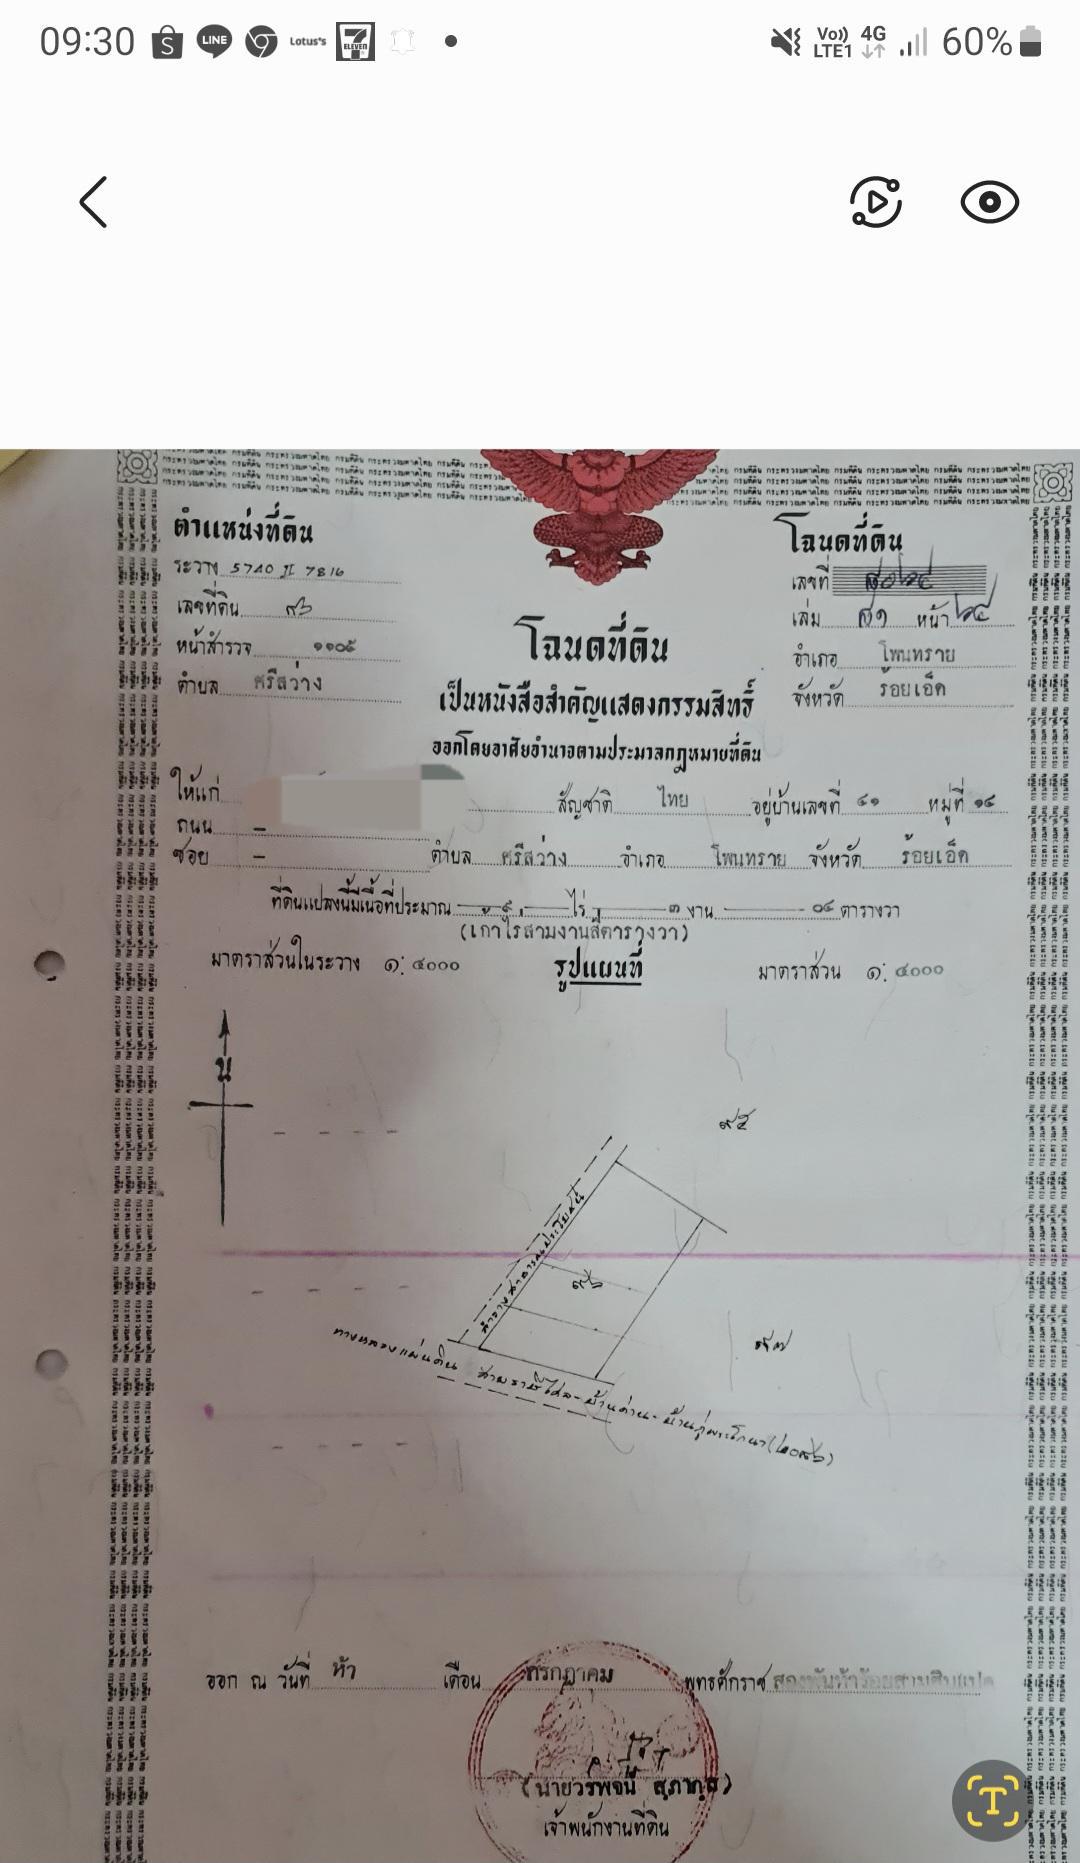 09:30 LINE Lotus's 7 ELEVEN Vo)) LTE1 4G 60%
ตำแหน่งที่ดิน
ระวาง 5740 II 7816
เลขที่ดิน ๙๖
หน้าสำรวจ ๑๑๐๕
ตำบล ศรีสว่าง
โฉนดที่ดิน
เลขที่
เล่ม ๕๑ หน้า ๒๔
อำเภอ โพนทราย
จังหวัด ร้อยเอ็ด
โฉนดที่ดิน
เป็นหนังสือสำคัญแสดงกรรมสิทธิ์
ออกโดยอาศัยอำนาจตามประมวลกฎหมายที่ดิน
ให้แก่ สัญชาติ ไทย อยู่บ้านเลขที่ ๔๑ หมู่ที่ ๑๔
ถนน –
ซอย – ตำบล ศรีสว่าง อำเภอ โพนทราย จังหวัด ร้อยเอ็ด
ที่ดินแปลงนี้มีเนื้อที่ประมาณ ๙ ไร่ ๓ งาน ๐๔ ตารางวา
(เก้าไร่สามงานสี่ตารางวา)
มาตราส่วนในระวาง ๑: ๔๐๐๐ รูปแผนที่ มาตราส่วน ๑: ๔๐๐๐
น
๙๕
ลำรางสาธารณประโยชน์
๙๖
๙๗
ทางหลวงแผ่นดิน สายราษีไศล-บ้านด่าน-บ้านกู่พระโกนา(๒๐๘๖)
ออก ณ วันที่ ห้า เดือน กรกฎาคม พุทธศักราช สองพันห้าร้อยสามสิบแปด
(นายวรพจน์
เจ้าพนักงานที่ดิน
T